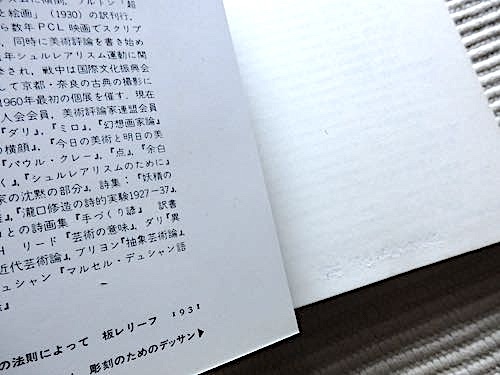 ズムに傾倒，ブルトン『超
と絵画』（1930）の訳刊行．
ら数年 PCL 映画でスクリプ
，同時に美術評論を書き始め
年シュルレアリスム運動に関
され，戦中は国際文化振興会
して京都・奈良の古典の撮影に
1960年最初の個展を催す．現在
人会会員，美術評論家連盟会員
『ダリ』，『ミロ』，『幻想画家論』
の横顔』，『今日の美術と明日の美
『パウル・クレー』，『点』，『余白
く』，『シュルレアリスムのために』
家の沈黙の部分』，詩集・『妖精の
『瀧口修造の詩的実験1927―37』，
ロとの詩画集『手づくり諺』 訳書
H リード『芸術の意味』，ダリ『異
近代芸術論』，ブリヨン『抽象芸術論』，
シャン『マルセル・デュシャン語
の法則によって 板レリーフ 1931
彫刻のためのデッサン▶